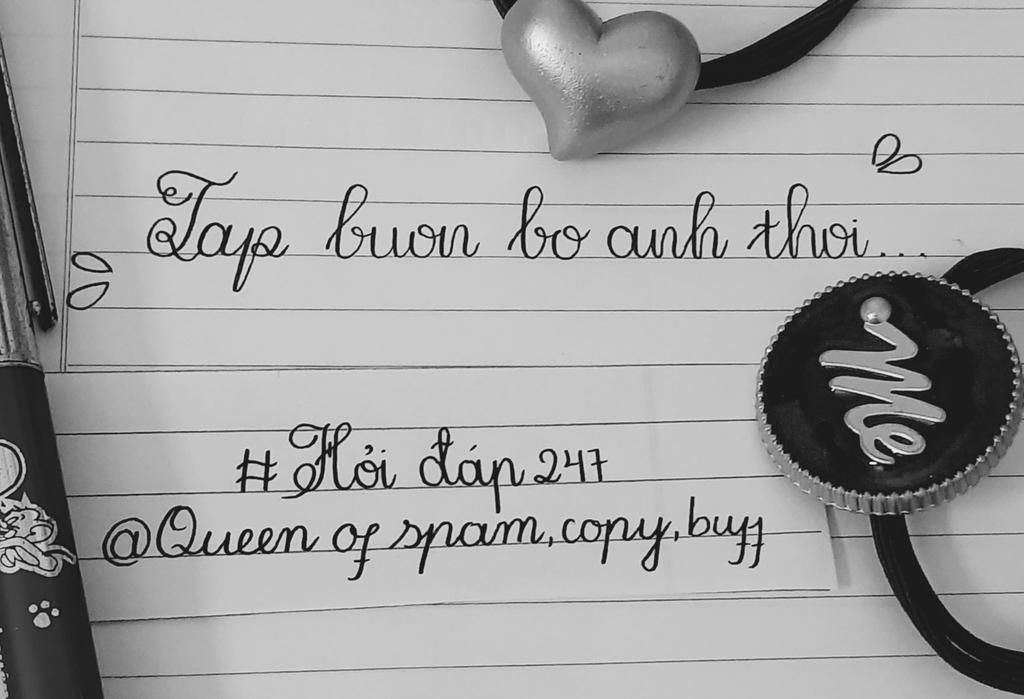 Tap buon bo anh thoi...
Me
#Hỏi đáp 247
@Queen of spam, copy, buff